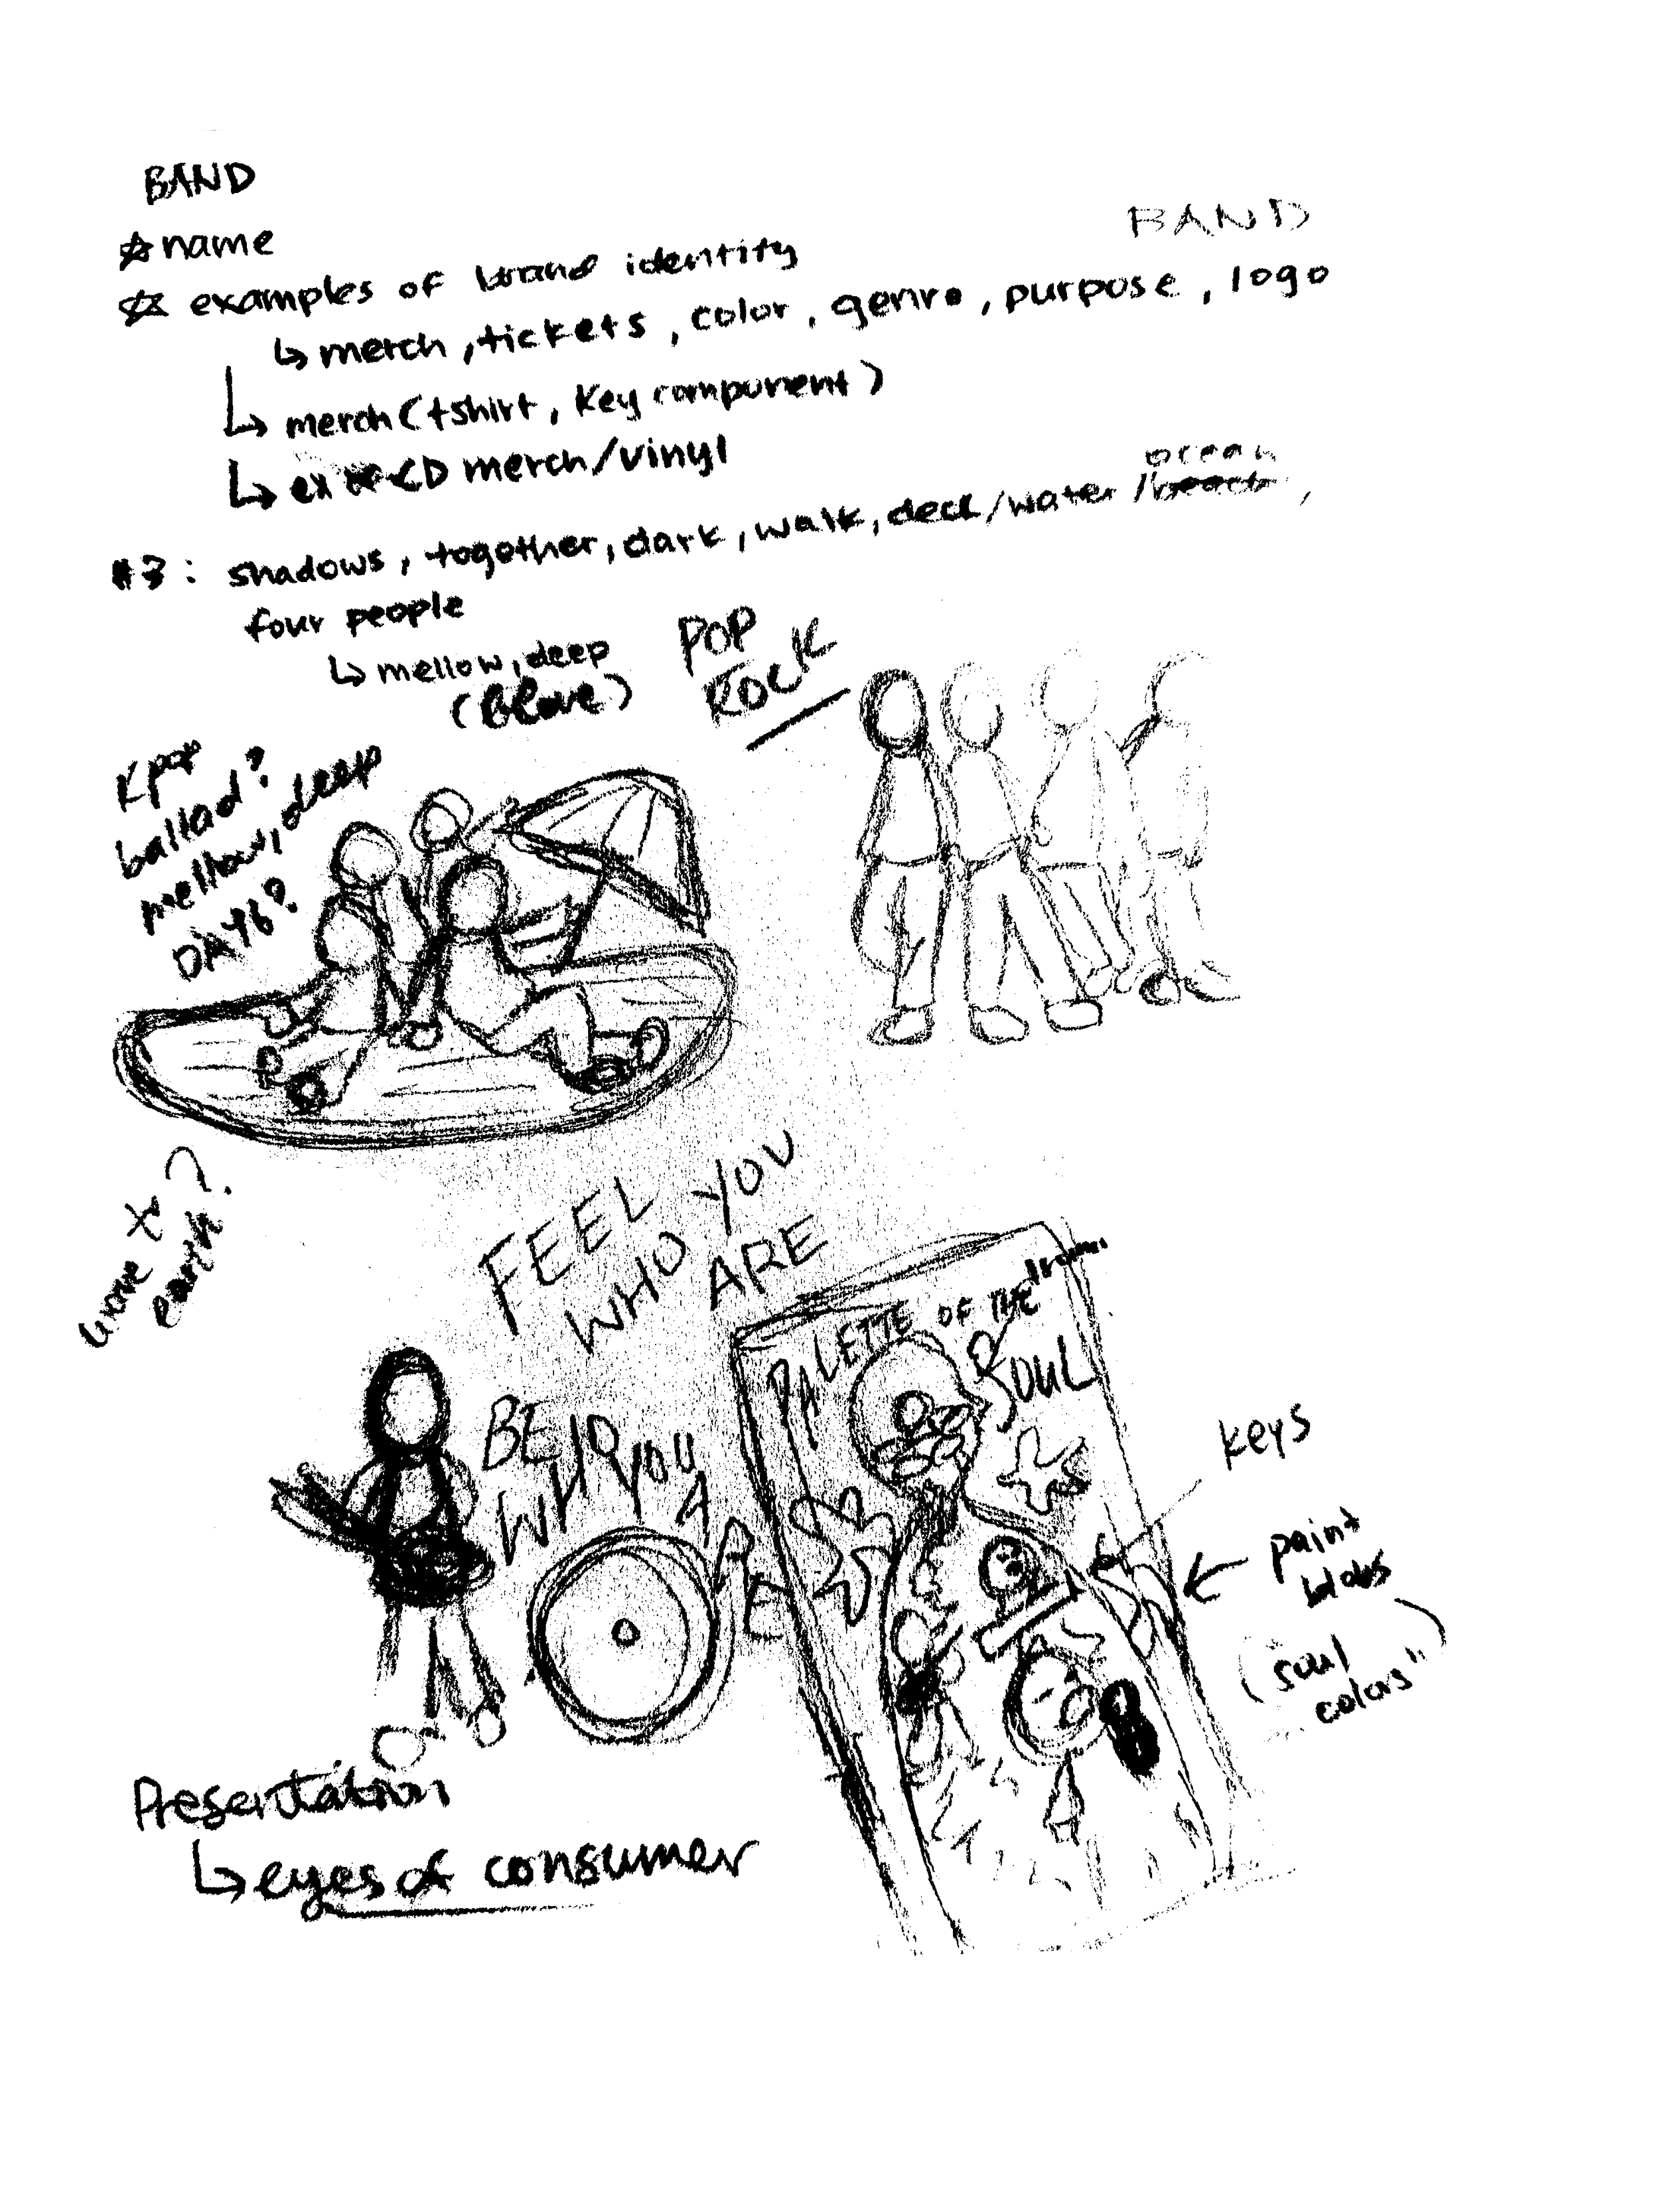 BAND
BAND
☆ name
☆ examples of brand identity
↳ merch, tickets, color, genre, purpose, logo
↳ merch (tshirt, key component)
↳ ex CD merch/vinyl
ocean
#3: shadows, together, dark, walk, deck/water/beach,
four people
↳ mellow, deep
POP
ROCK
Kpop
ballad?
mellow, deep
DAY6?
earth?
FEEL
WHO YOU
ARE
PALETTE OF THE
SOUL
BE
WH YOU
ARE
keys
← paint
blobs
("soul
colors")
Presentation
↳ eyes of consumer